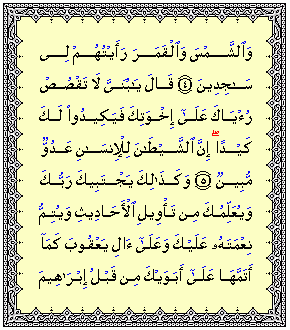 وَٱلشَّمۡسَ وَٱلۡقَمَرَ رَأَيۡتُهُمۡ لِي
سَٰجِدِينَ ٤ قَالَ يَٰبُنَيَّ لَا تَقۡصُصۡ
رُءۡيَاكَ عَلَىٰٓ إِخۡوَتِكَ فَيَكِيدُواْ لَكَ
كَيۡدًاۖ إِنَّ ٱلشَّيۡطَٰنَ لِلۡإِنسَٰنِ عَدُوّٞ
مُّبِينٞ ٥ وَكَذَٰلِكَ يَجۡتَبِيكَ رَبُّكَ
وَيُعَلِّمُكَ مِن تَأۡوِيلِ ٱلۡأَحَادِيثِ وَيُتِمُّ
نِعۡمَتَهُۥ عَلَيۡكَ وَعَلَىٰٓ ءَالِ يَعۡقُوبَ كَمَآ
أَتَمَّهَا عَلَىٰٓ أَبَوَيۡكَ مِن قَبۡلُ إِبۡرَٰهِيمَ